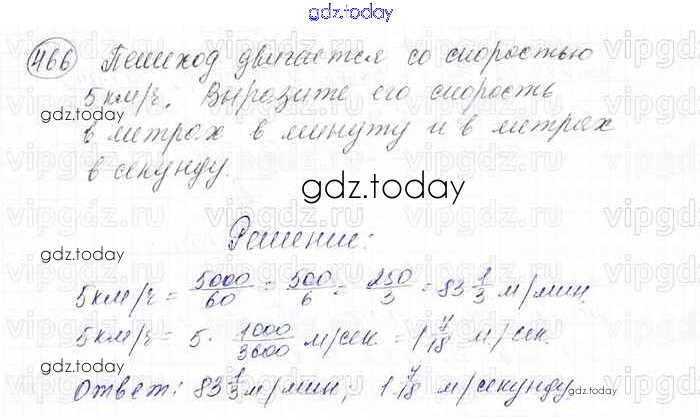 gdz.today
466 Пешеход двигается со скоростью
5 км/ч. Выразите его скорость
в метрах в минуту и в метрах
в секунду.
gdz.today
Решение:
5 км/ч = 5000/60 = 500/6 = 250/3 = 83 1/3 м/мин
5 км/ч = 5 · 1000/3600 м/сек = 1 7/18 м/сек.
Ответ: 83 1/3 м/мин; 1 7/18 м/секунду
gdz.today
gdz.today
gdz.today
gdz.today
vipgdz.ru